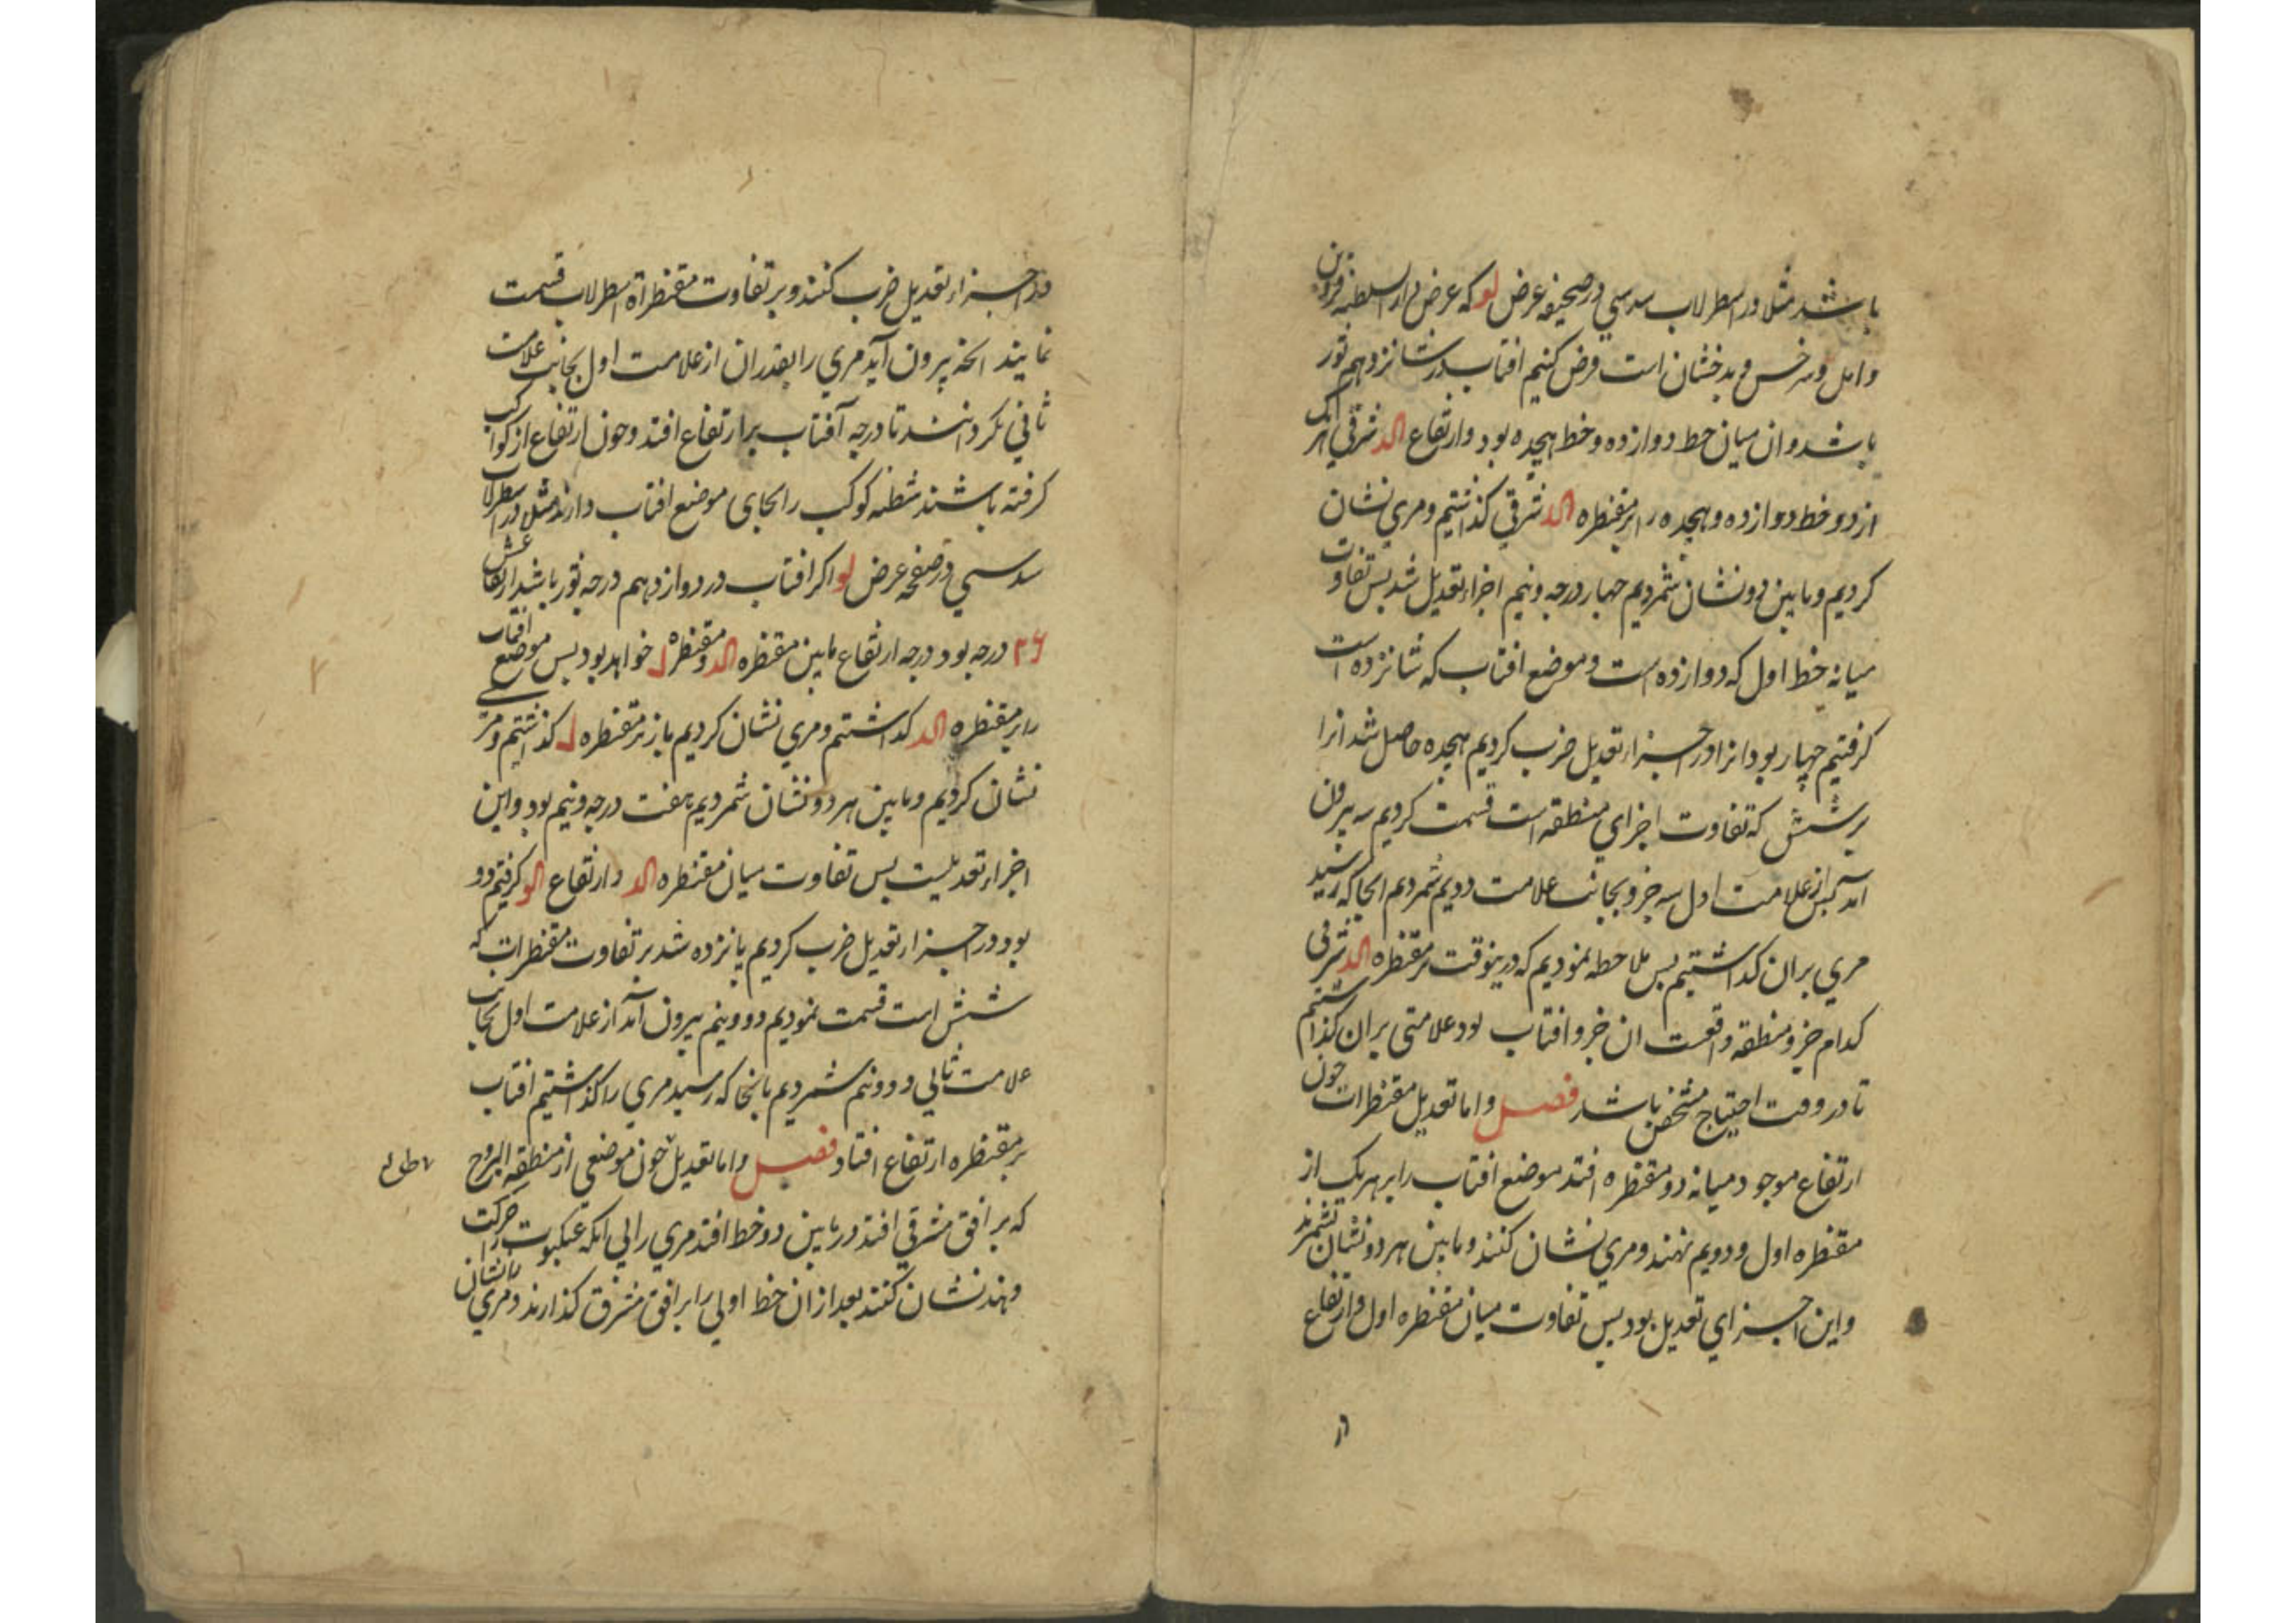 باشد مثلا در اسطرلاب سدسی در صحیفه عرض لو که عرض دار السلطنه قزوین
و امل و سرخس و بدخشان است فرض کنیم افتاب در شانزدهم ثور
باشد و ان میان خط دوازده و خط هیجده بود و ارتفاع الد شرقی هر یک
از دو خط دوازده و هیجده را بر مقنطره الد شرقی گذاشتیم و مری نشان
کردیم و مابین دو نشان شمردیم چهار درجه و نیم اجزاء تعدیل شد بس تفاوت
میانه خط اول که دوازده است و موضع افتاب که شانزده است
گرفتیم چهار بود انرا در اجزاء تعدیل ضرب کردیم هیجده حاصل شد انرا
بر شش که تفاوت اجزای منطقه است قسمت کردیم سه بیرون
امد بس از علامت اول سه جزو بجانب علامت دویم شمردیم انجا که رسید
مری بران گذاشتیم بس ملاحظه نمودیم که درینوقت بر مقنطره الد شرقی
کدام جزو منطقه واقعست ان جزو افتاب بود علامتی بران گذاشتیم
تا در وقت احتیاج مشخص باشد فصل و اما تعدیل مقنطرات چون
ارتفاع موجود میانه دو مقنطره افتد موضع افتاب را بر هر یک از
مقنطره اول و دویم نهند و مری نشان کنند و مابین هر دو نشان بشمرند
و این اجزای تعدیل بود بس تفاوت میان مقنطره اول و ارتفاع
در اجزاء تعدیل ضرب کنند و بر تفاوت مقنطراة اسطرلاب قسمت
نمایند انچه بیرون آید مری را بقدر ان از علامت اول بجانب علامت
ثانی بگردانند تا درجه آفتاب بر ارتفاع افتد و چون ارتفاع از کواکب
گرفته باشند شظیه کوکب را بجای موضع افتاب دارند مثلا در اسطرلاب
سدسی در صفحه عرض لو اگر افتاب در دوازدهم درجه ثور باشد ارتفاعش
۲۶ درجه بود درجه ارتفاع مابین مقنطره الد و مقنطره ل خواهد بود بس موضع افتاب
را بر مقنطره الد گذاشتم و مری نشان کردیم باز بر مقنطره ل گذاشتیم و مری
نشان کردیم و مابین هر دو نشان شمردیم هفت درجه و نیم بود و این
اجزاء تعدیلست بس تفاوت میان مقنطره الد و ارتفاع الو گرفتیم دو
بود در اجزاء تعدیل ضرب کردیم پانزده شد بر تفاوت مقنطرات که
شش است قسمت نمودیم دو و نیم بیرون آمد از علامت اول بجانب
علامت ثانی دو و نیم شمردیم بانجا که رسید مری را گذاشتیم افتاب
بر مقنطره ارتفاع افتاد فصل و اما تعدیل چون موضعی از منطقه البروج
که بر افق مشرقی افتد در مابین دو خط افتد مری را بی انکه عنکبوت را حرکت
دهند نشان کنند بعد از ان خط اولی را بر افق مشرق گذارند و مری را نشان